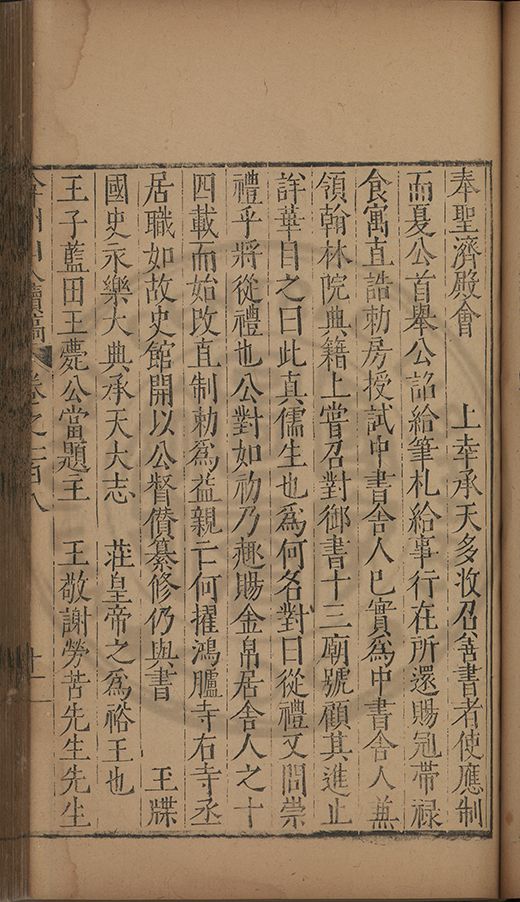 奉聖濟殿會　　上幸承天多收召善書者使應制
而夏公首舉公詔給筆札給事行在所還賜冠帶祿
食寓直誥勅房授試中書舍人已實為中書舍人兼
領翰林院典籍上嘗召對御書十三廟號顧其進止
詳華目之曰此真儒生也為何名對曰從禮又問崇
禮乎將從禮也公對如初乃趣賜金帛居舍人之十
四載而始改直制勅為益親亡何擢鴻臚寺右寺丞
居職如故史館開以公督儹纂修仍與書　　王牒
國史永樂大典承天大志　莊皇帝之為裕王也
王子藍田王薨公當題主　王敬謝勞苦先生先生
弇州山人續稿　卷之一百八　十一